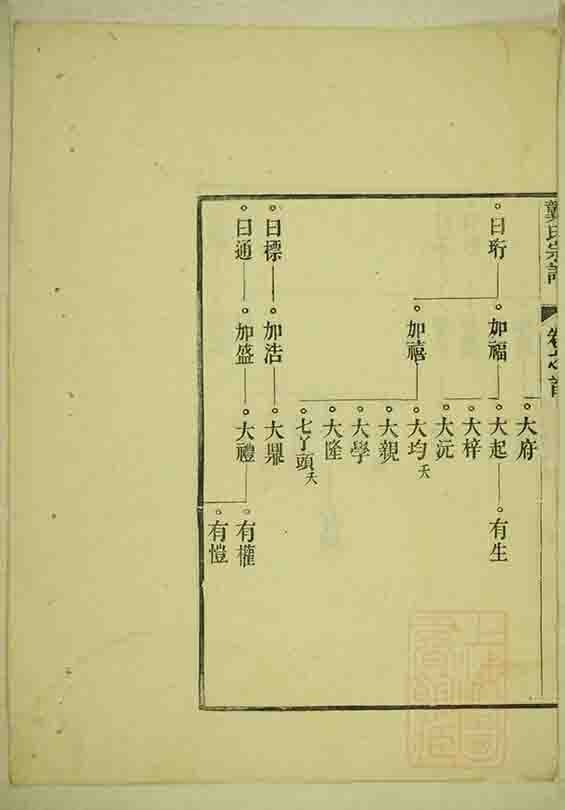 龔氏宗譜
卷之首
大府
曰珩
加福
大起
有生
大梓
大沅
加禧
大均 夭
大親
大學
大隆
七丫頭 夭
曰標
加浩
大鼎
曰通
加盛
大禮
有權
有愷